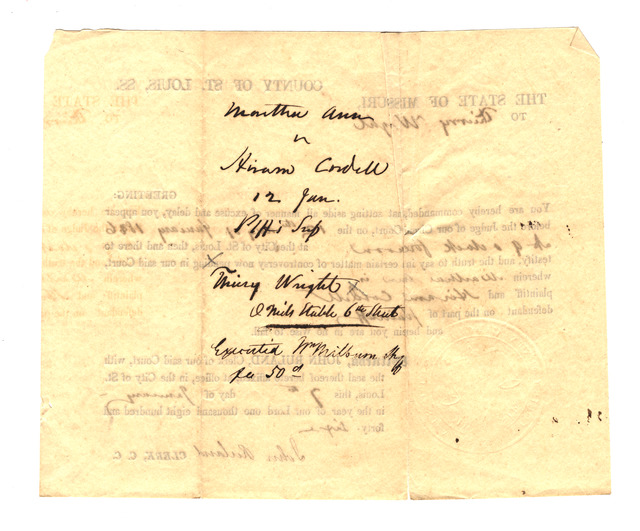 Martha Ann
v
Hiram Cordell
12 Jan.
Plffs Sup
Thiery Wright
O Neils Stable 6th Street
Executed Wm Milburn Shff
fee 50 cts
COUNTY OF ST. LOUIS, SS.
THE STATE OF MISSOURI,
TO Thiery Wright
GREETING:
You are hereby commanded that setting aside all manner of excuse and delay, you appear
before the Judge of our Circuit Court, on the
January 1846
at the City of St. Louis, then and there to
testify, and the truth to say in a certain matter of controversy now pending in our said Court,
wherein Martha Ann is
plaintiff and Hiram Cordell
defendant on the part of
and herein you are in no wise to fail.
JOHN RULAND, Clerk of our said Court, with
the seal thereof hereto affixed, at office, in the City of St.
Louis, this 7th day of January
in the year of our Lord one thousand eight hundred and
forty-six
John Ruland CLERK, C. C.